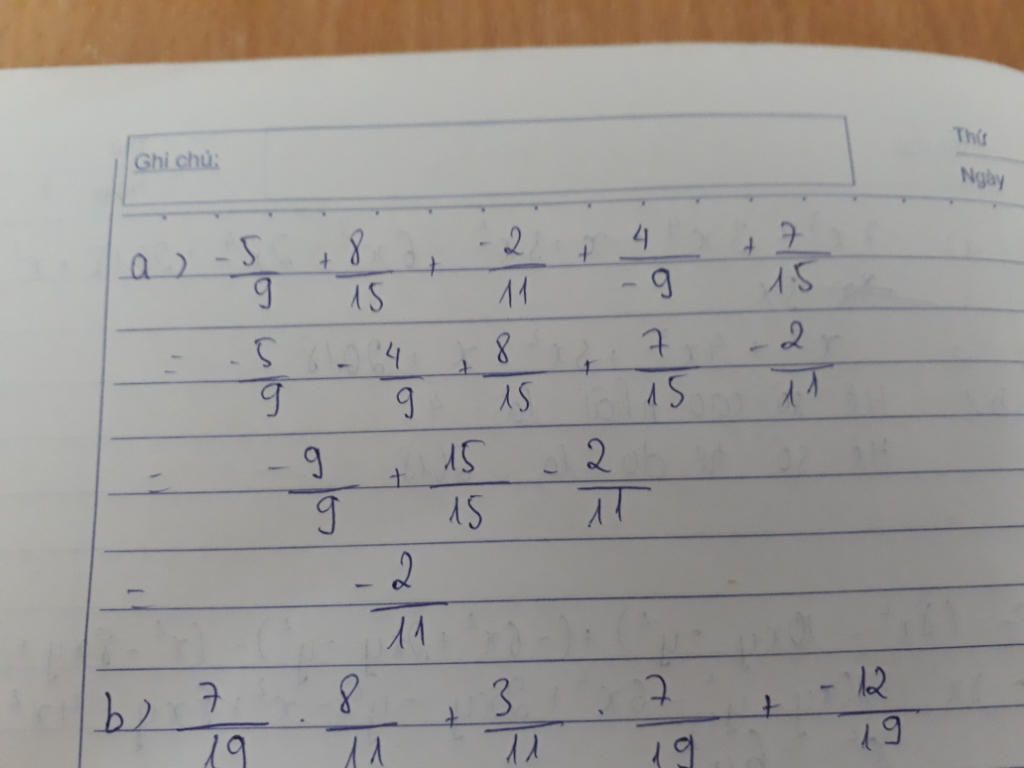 Ghi chú:
Thứ
Ngày
a) -5/9 + 8/15 + -2/11 + 4/-9 + 7/15
= -5/9 - 4/9 + 8/15 + 7/15 - 2/11
= -9/9 + 15/15 - 2/11
= -2/11
b) 7/19 . 8/11 + 3/11 . 7/19 + -12/19